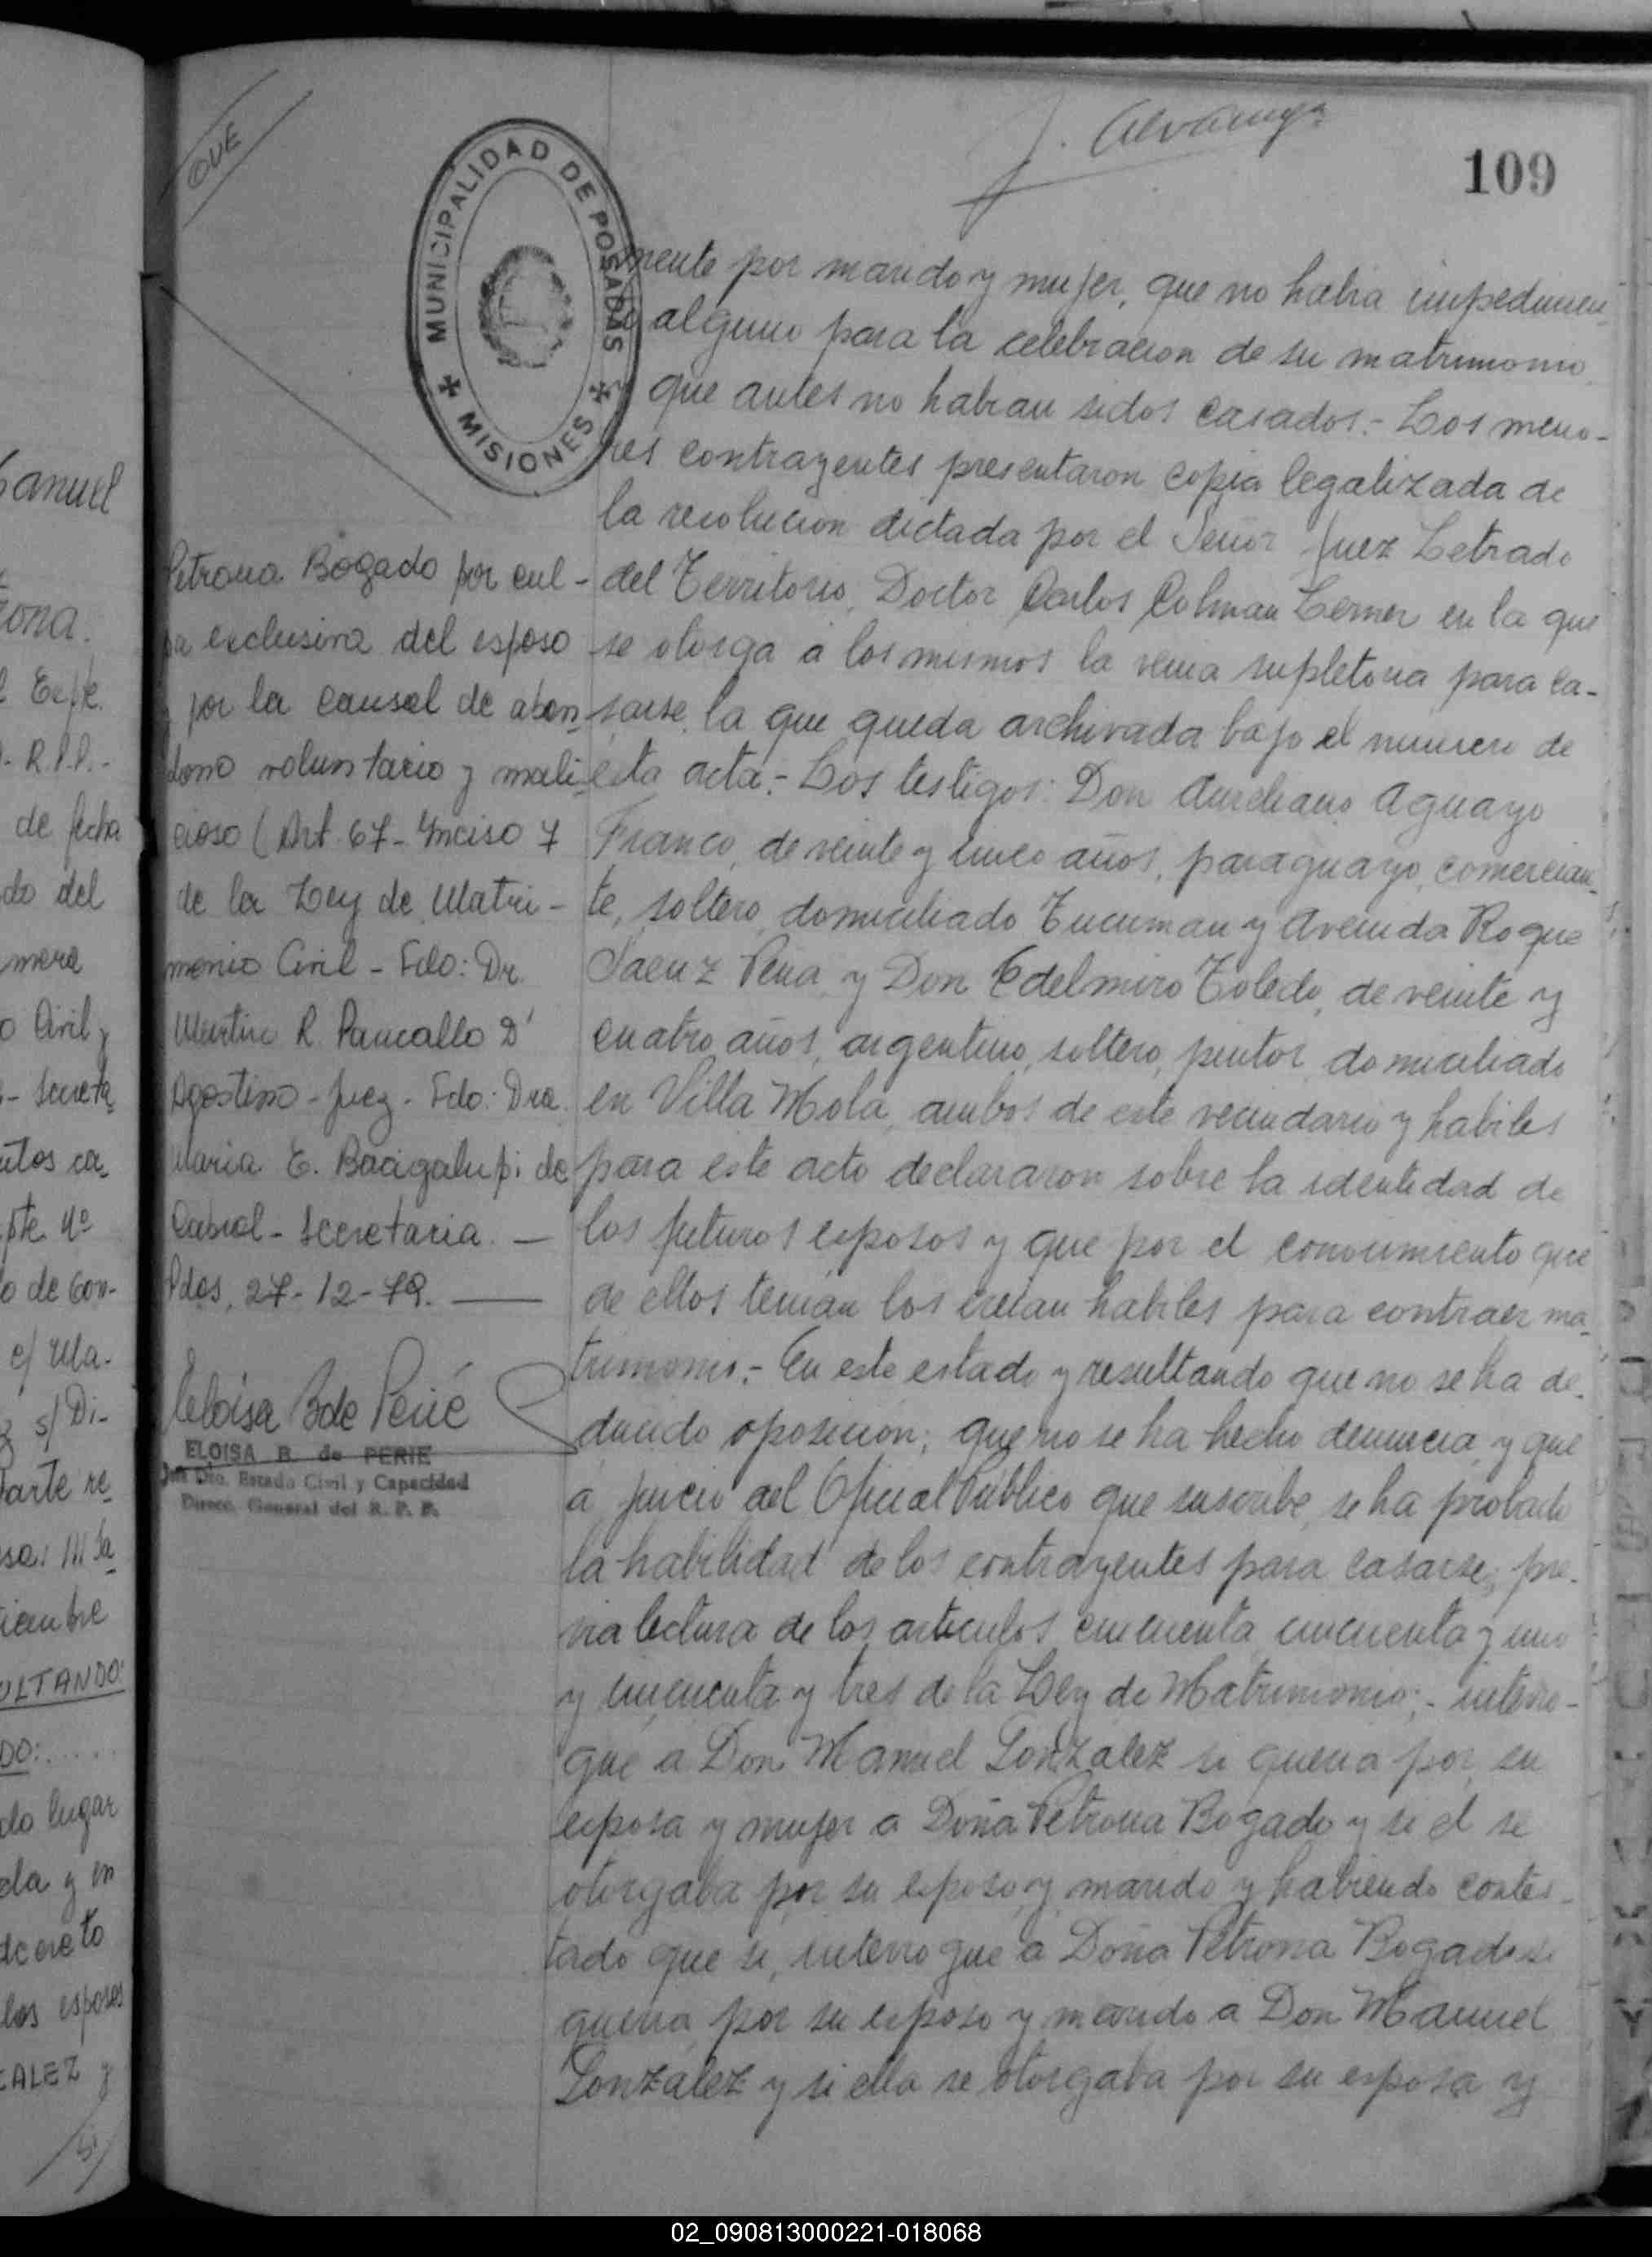 anuel
ona.
Expte.
- R.P.P.-
de fecha
do del
mera
o Civil y
- Secreta
utos ca-
pte nº
o de Gon-
c/ Ma-
s/ Di-
Parte re-
iembre
ULTANDO:
DO:.....
do lugar
da y en
decreto
los esposos
ZALEZ y
QUE
MUNICIPALIDAD DE POSADAS
MISIONES
109
mente por marido y mujer, que no habia impedimen
to alguno para la celebracion de su matrimonio
que antes no habian sidos casados.- Los meno-
res contrayentes presentaron copia legalizada de
la resolucion dictada por el Señor Juez Letrado
del Territorio, Doctor Carlos Colman Lerner en la que
se otorga a los mismos la venia supletoria para ca-
sarse, la que queda archivada bajo el numero de
esta acta.- Los testigos: Don Aureliano Aguayo
Franco, de veinte y cinco años, paraguayo, comercian-
te, soltero, domiciliado Tucuman y Avenida Roque
Saenz Peña y Don Edelmiro Toledo, de veinte y
cuatro años, argentino, soltero, pintor, domiciliado
en Villa Mola, ambos de este vecindario y habiles
para este acto declararon sobre la identidad de
los futuros esposos y que por el conocimiento que
de ellos tenian los creian habiles para contraer ma-
trimonio.- En este estado y resultando que no se ha de-
ducido oposicion; que no se ha hecho denuncia, y que
a juicio del Oficial Publico que suscribe, se ha probado
la habilidad de los contrayentes para casarse, pre-
via lectura de los articulos cincuenta, cincuenta y uno
y cincuenta y tres de la Ley de Matrimonio;- interro-
gue a Don Manuel Gonzalez si queria por su
esposa y mujer a Doña Petrona Bogado y si el se
otorgaba por su esposo y marido y habiendo contes-
tado que si, interrogue a Doña Petrona Bogado si
queria por su esposo y marido a Don Manuel
Gonzalez y si ella se otorgaba por su esposa y
Petrona Bogado por cul-
pa exclusiva del esposo
y por la causal de aban-
dono voluntario y mali-
cioso (Art. 67- Inciso 7
de la Ley de Matri-
monio Civil - Fdo: Dr.
Martin R. Pancallo D'
Agostino - Juez - Fdo: Dra.
Maria E. Bacigalupi de
Cabral - Secretaria. —
Pdas, 27-12-79. ——
Eloisa B de Perié
ELOISA B. de PERIE
Jefe Dto. Estado Civil y Capacidad
Direcc. General del R. P. P.
02_090813000221-018068